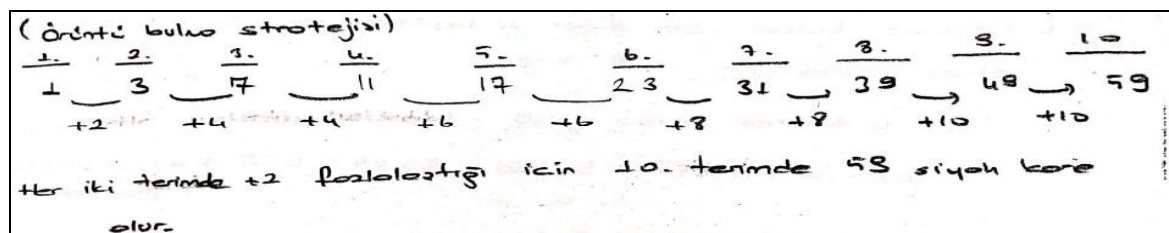 (Örüntü bulma stratejisi)
1. 2. 3. 4. 5. 6. 7. 8. 9. 10
1 3 7 11 17 23 31 39 49 59
+2 +4 +4 +6 +6 +8 +8 +10 +10
Her iki terimde +2 fazlalaştığı için 10. terimde 59 siyah kare
olur.